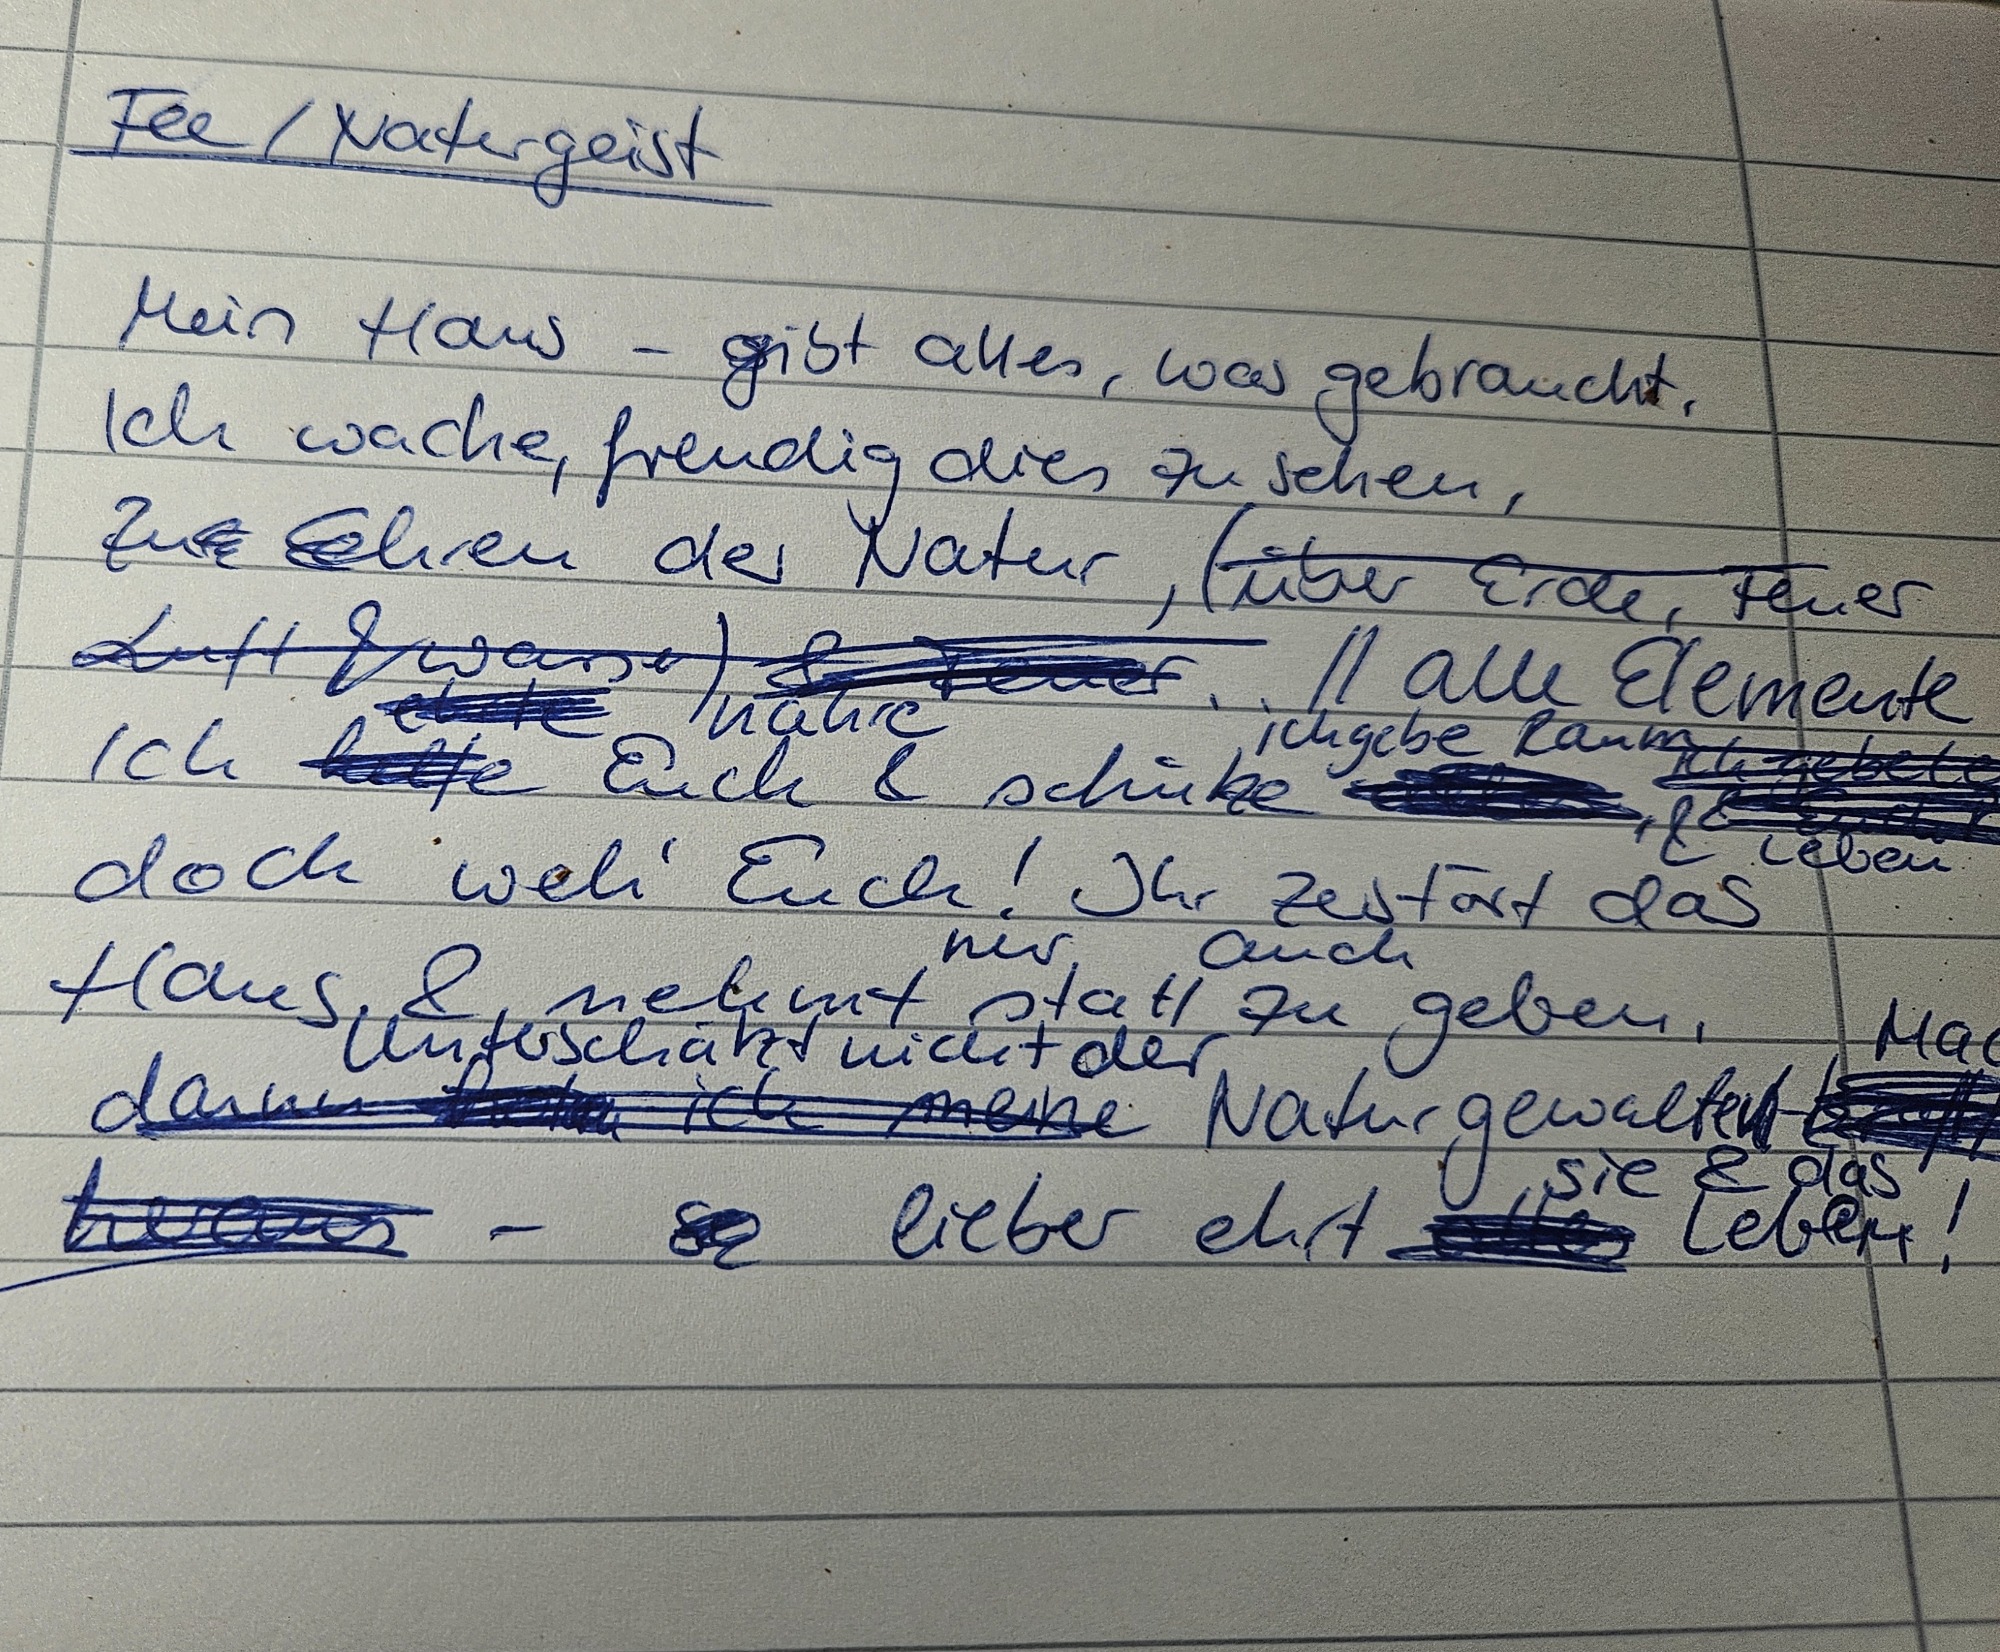 Fee / Naturgeist
Mein Haus - gibt alles, was gebraucht.
Ich wache, freudig dies zu sehen,
Zu Ehren der Natur, (über Erde, Feuer
Luft & Wasser) & Feuer... // alle Elemente
ehrte nähre ich gebe Raum
Ich Euch & schütze
& Leben
doch weh' Euch! Ihr zerstört das
nur auch
Haus, & nehmt statt zu geben,
Unterschätzt nicht der Mac
dann ich meine Naturgewalten
sie & das
- lieber ehrt Leben!